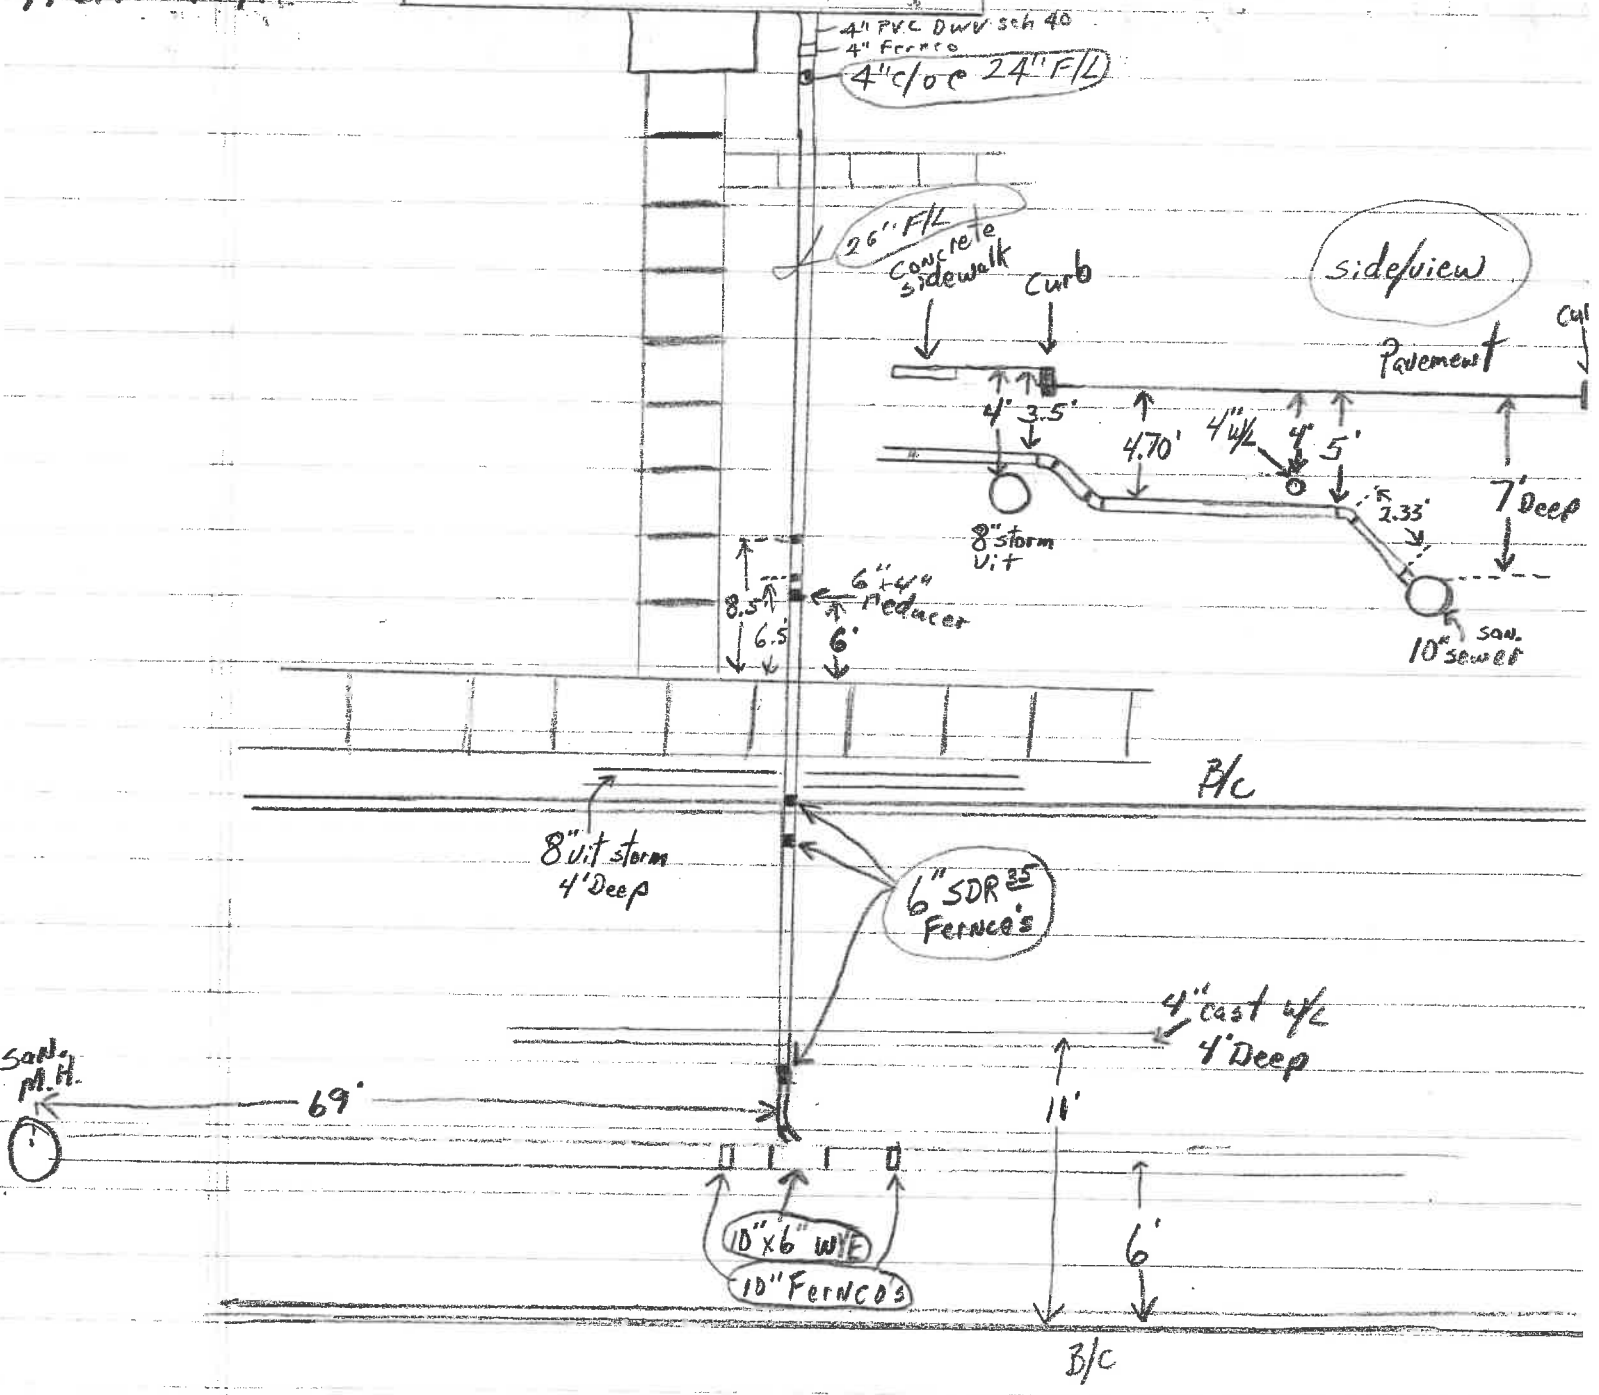 4" PVC DWV Sch 40
4" Fernco
4" c/o @ 24" F/L
26" F/L
Concrete
sidewalk
Curb
side/view
Cur
Pavement
4'
3.5'
4.70'
4" W/L
4'
5'
7' Deep
2.33'
8" storm
vit
10" san.
sewer
8.5'
6.5'
6'
6" + 4"
reducer
B/C
8" vit storm
4' Deep
6" SDR 35
Fernco's
4" cast w/L
4' Deep
San.
M.H.
69'
11'
6'
10" x 6" WYE
10" FERNCO'S
B/C